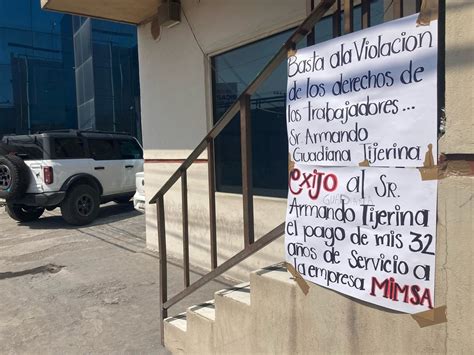 Basta a la Violacion
de los derechos de
los Trabajadores...
Sr Armando
Guadiana Tijerina
exijo al Sr.
GUADIANA
Armando Tijerina
el pago de mis 32
años de Servicio a
la empresa MIMSA